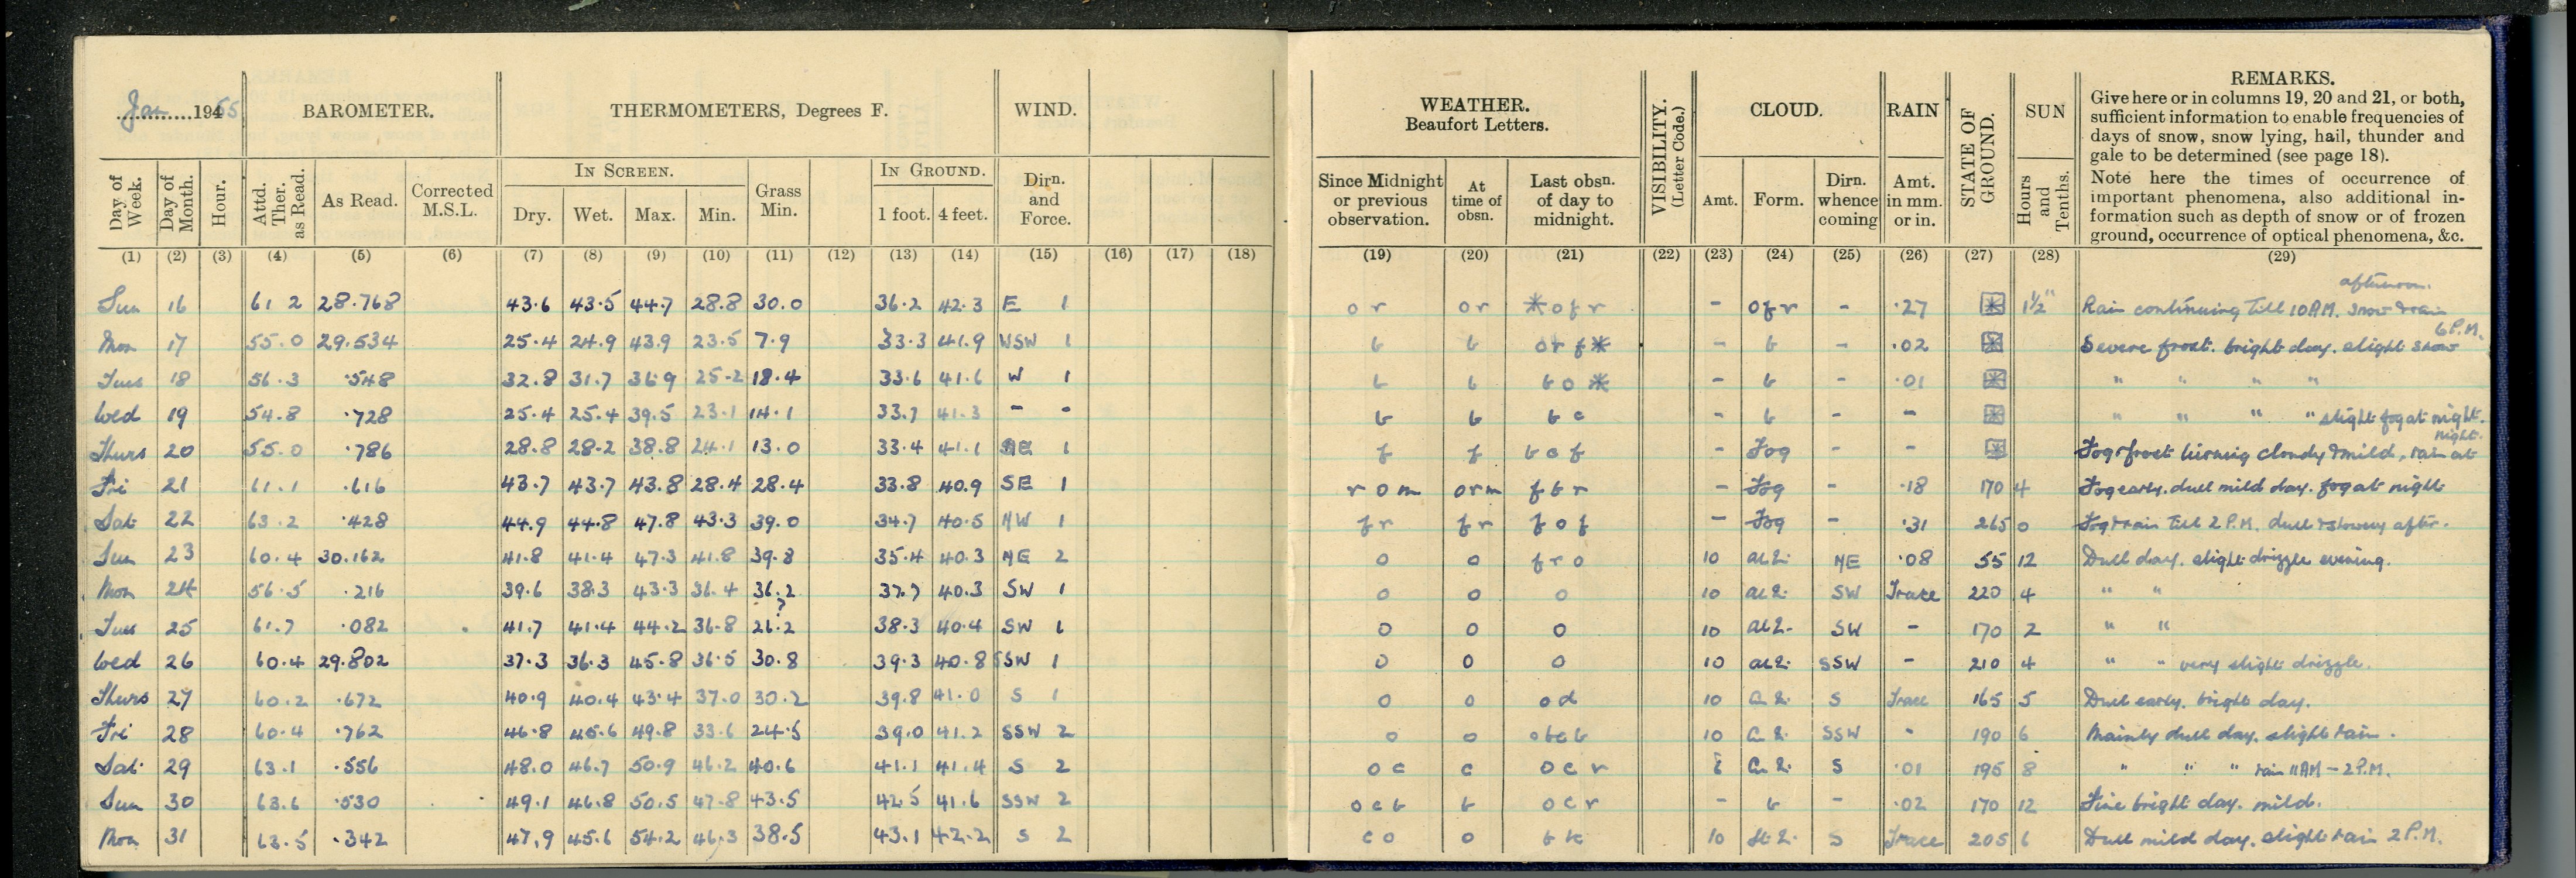 Jan 1945 55
BAROMETER.
THERMOMETERS, Degrees F.
WIND.
WEATHER.
Beaufort Letters.
VISIBILITY.
(Letter Code.)
CLOUD.
RAIN
STATE OF
GROUND.
SUN
REMARKS.
Give here or in columns 19, 20 and 21, or both,
sufficient information to enable frequencies of
days of snow, snow lying, hail, thunder and
gale to be determined (see page 18).
Note here the times of occurrence of
important phenomena, also additional in-
formation such as depth of snow or of frozen
ground, occurrence of optical phenomena, &c.
Day of Week.
Day of Month.
Hour.
Attd. Ther. as Read.
As Read.
Corrected M.S.L.
IN SCREEN.
Dry. Wet. Max. Min.
Grass Min.
IN GROUND.
1 foot. 4 feet.
Dirn. and Force.
Since Midnight or previous observation.
At time of obsn.
Last obsn. of day to midnight.
Amt. Form.
Dirn. whence coming
Amt. in mm. or in.
Hours and Tenths.
(1) (2) (3) (4) (5) (6) (7) (8) (9) (10) (11) (12) (13) (14) (15) (16) (17) (18) (19) (20) (21) (22) (23) (24) (25) (26) (27) (28) (29)
afternoon.
Sun 16 61.2 28.768 43.6 43.5 44.7 28.8 30.0 36.2 42.3 E 1 o r o r *o f r - ofr - .27 1½" Rain continuing Till 10 A.M. Snow & rain
6 P.M.
Mon 17 55.0 29.534 25.4 24.9 43.9 23.5 7.9 33.3 41.9 WSW 1 b b or f* - b - .02 Severe frost. bright day. slight snow
Tues 18 56.3 .548 32.8 31.7 36.9 25.2 18.4 33.6 41.6 W 1 b b b o * - b - .01 " " " "
Wed 19 54.8 .728 25.4 25.4 39.5 23.1 14.1 33.7 41.3 - - b b b c - b - - " " " " slight fog at night.
night.
Thurs 20 55.0 .786 28.8 28.2 38.8 24.1 13.0 33.4 41.1 1 f f b c f - Fog - - Fog & frost turning cloudy & mild, rain at
Fri 21 61.1 .616 43.7 43.7 43.8 28.4 28.4 33.8 40.9 SE 1 r o m orm f b r - Fog - .18 170 4 Fog early. dull mild day. fog at night
Sat 22 63.2 .428 44.9 44.8 47.8 43.3 39.0 34.7 40.5 NW 1 f r f r f o f - Fog - .31 265 0 Fog & rain Till 2 P.M. dull & showery after.
Sun 23 60.4 30.162 41.8 41.4 47.3 41.8 39.8 35.4 40.3 NE 2 o o f r o 10 NE .08 55 12 Dull day. slight drizzle evening.
Mon 24 56.5 .216 39.6 38.3 43.3 36.4 36.2 37.7 40.3 SW 1 o o o 10 SW Trace 220 4 " "
?
Tues 25 61.7 .082 41.7 41.4 44.2 36.8 26.2 38.3 40.4 SW 1 o o o 10 SW - 170 2 " "
Wed 26 60.4 29.802 37.3 36.3 45.8 36.5 30.8 39.3 40.8 SSW 1 o o o 10 SSW - 210 4 " " very slight drizzle.
Thurs 27 60.2 .672 40.9 40.4 43.4 37.0 30.2 39.8 41.0 S 1 o o o d 10 S Trace 165 5 Dull early, bright day.
Fri 28 60.4 .762 46.8 45.6 49.8 33.6 24.5 39.0 41.2 SSW 2 o o obcb 10 SSW - 190 6 Mainly dull day. slight rain.
Sat 29 63.1 .556 48.0 46.7 50.9 46.2 40.6 41.1 41.4 S 2 o c c o c r S .01 195 8 " " " rain 11 AM - 2 P.M.
Sun 30 63.6 .530 49.1 46.8 50.5 47.8 43.5 42.5 41.6 SSW 2 o c b b o c r - b - .02 170 12 Fine bright day. mild.
Mon 31 63.5 .342 47.9 45.6 54.2 46.3 38.5 43.1 42.2 S 2 c o o 10 S Trace 205 6 Dull mild day. slight rain 2 P.M.